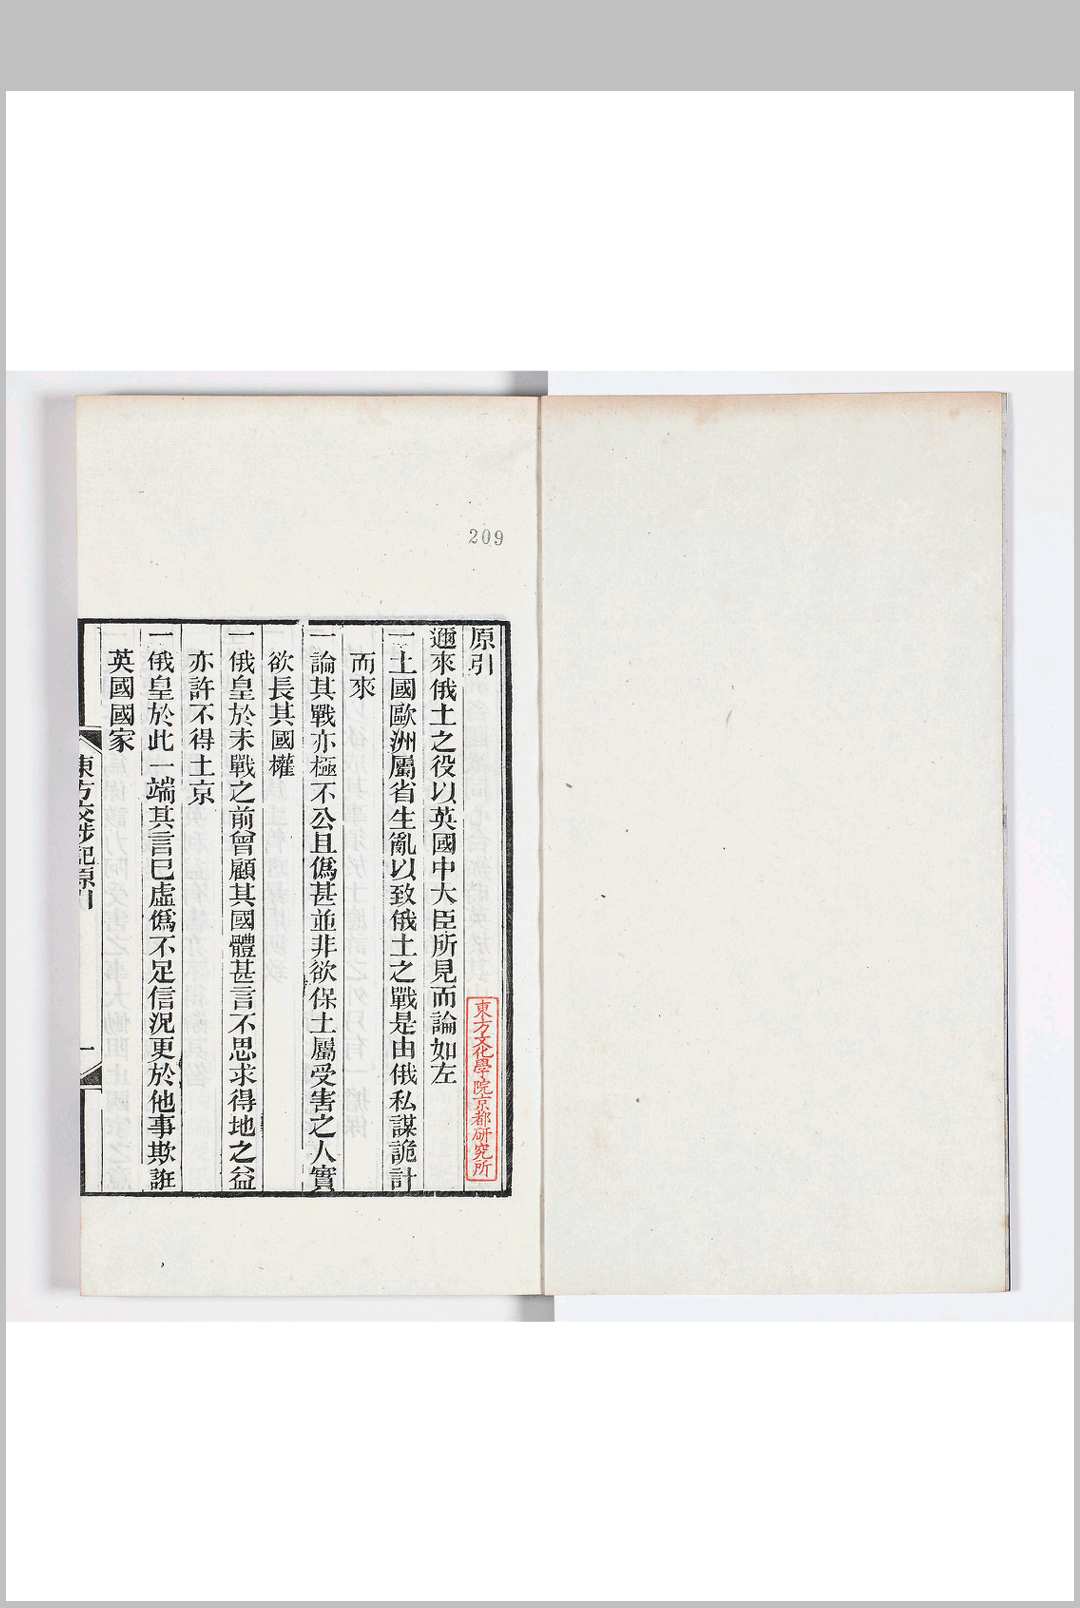 209
原引
東方文化學院京都研究所
邇來俄土之役以英國中大臣所見而論如左
一土國歐洲屬省生亂以致俄土之戰是由俄私謀詭計
而來
一論其戰亦極不公且僞甚並非欲保土屬受害之人實
欲長其國權
一俄皇於未戰之前曾顧其國體甚言不思求得地之益
亦許不得土京
一俄皇於此一端其言已虛僞不足信況更於他事欺誑
英國國家
東方交涉記原引
一